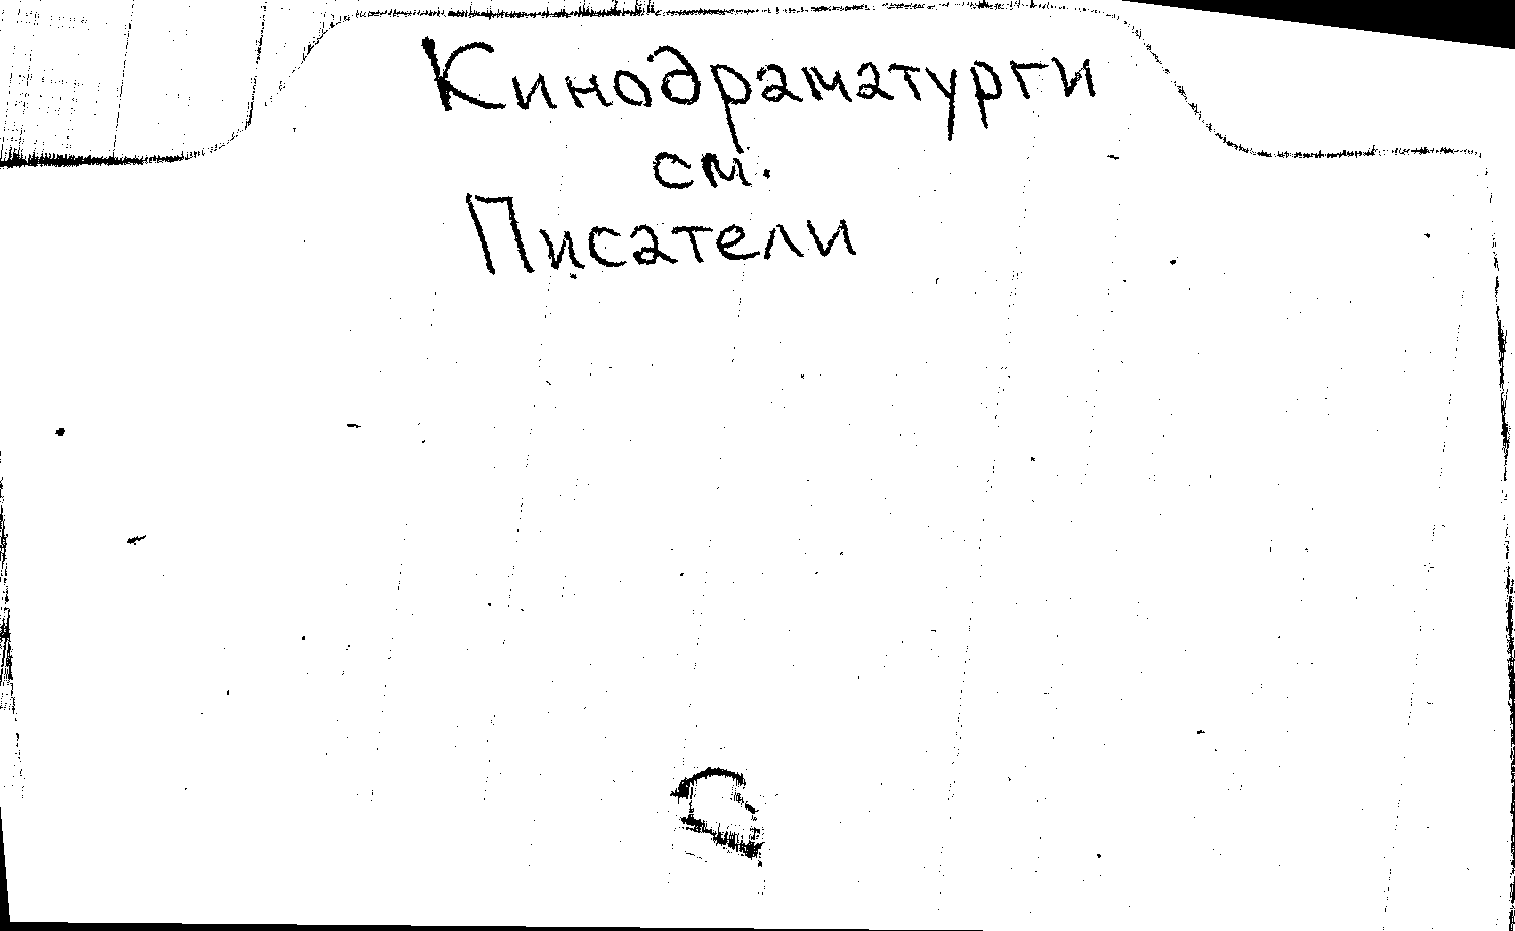 Кинодраматурги
см.
Писатели